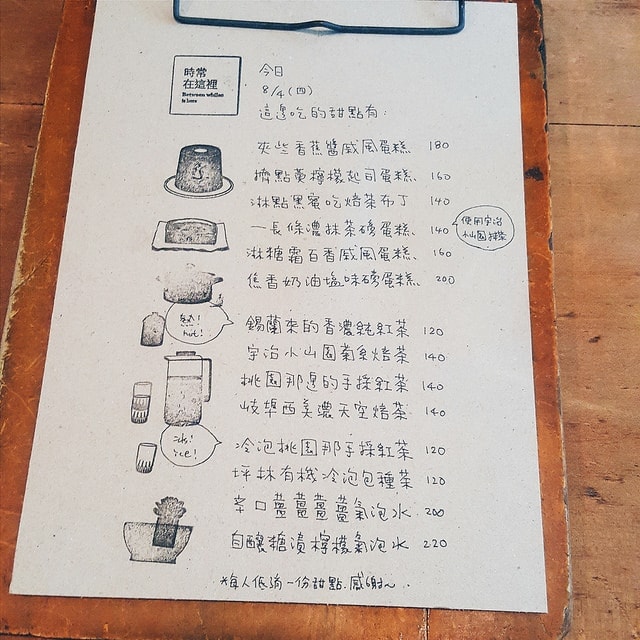 時常
在這裡
Between whiles
is here
今日
8/4(四)
這邊吃的甜點有:
夾些香蕉醬戚風蛋糕 180
擠點羹檸檬起司蛋糕 160
淋點黑蜜吃焙茶布丁 140
一長條濃抹茶磅蛋糕 140
使用宇治
小山園抹茶
淋糖霜百香戚風蛋糕 160
焦香奶油塩味磅蛋糕 200
熱!
hot!
錫蘭來的香濃純紅茶 120
宇治小山園菊系焙茶 140
桃園那邊的手採紅茶 140
岐埠西美濃天空焙茶 140
冰!
ice!
冷泡桃園那手採紅茶 120
坪林有機冷泡包種茶 120
辛口薑薑薑薑氣泡水 200
自釀糖漬檸檬氣泡水 220
*每人低消一份甜點.感謝~